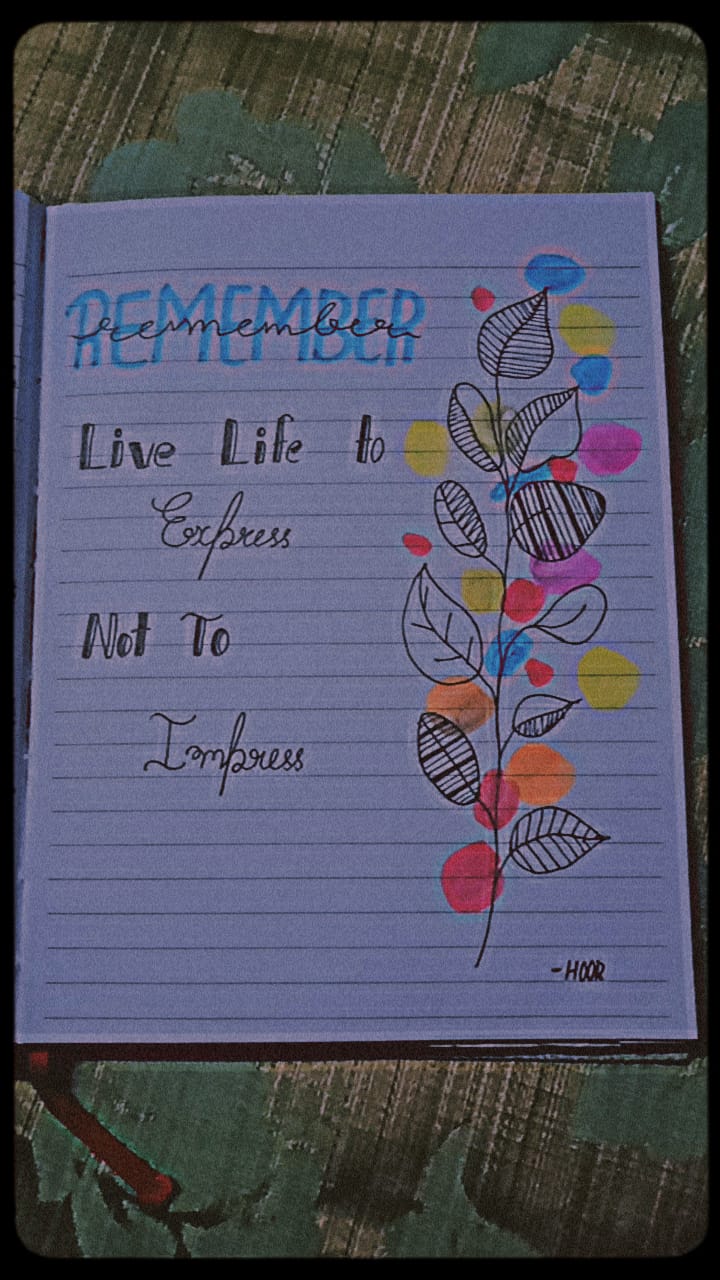 REMEMBER
remember
Live Life to
Express
Not To
Impress
-HOOR